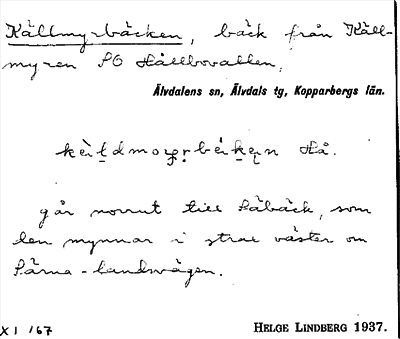 Källmyrbäcken, bäck från Käll-
myren SO Hållbovallen,
Älvdalens sn, Älvdals tg, Kopparbergs län.
Hå.
går norrut till Såbäck, som
den mynnar i strax väster om
Särna-landsvägen.
XI 167 HELGE LINDBERG 1937.